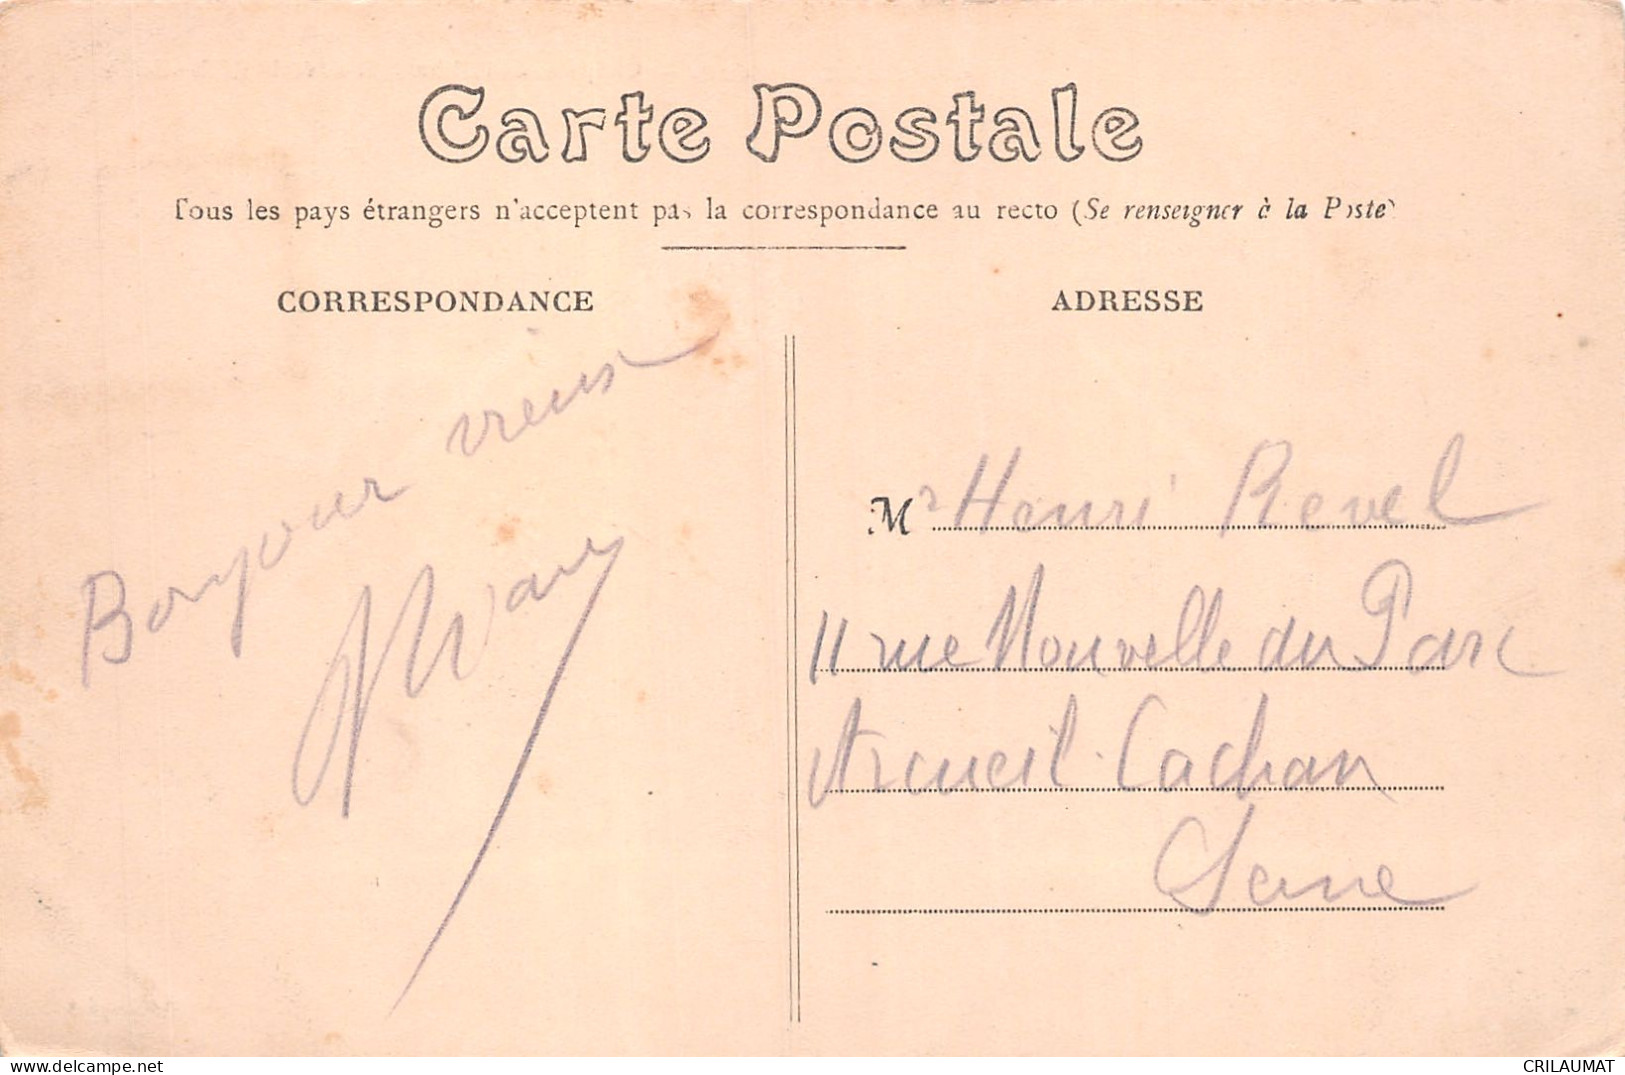 Carte Postale
Tous les pays étrangers n'acceptent pas la correspondance au recto (Se renseigner à la Poste)
CORRESPONDANCE
ADRESSE
Bonjour vieux
Mr Henri Revel
11 rue Nouvelle du Parc
Arcueil-Cachan
Seine
www.delcampe.net
CRILAUMAT